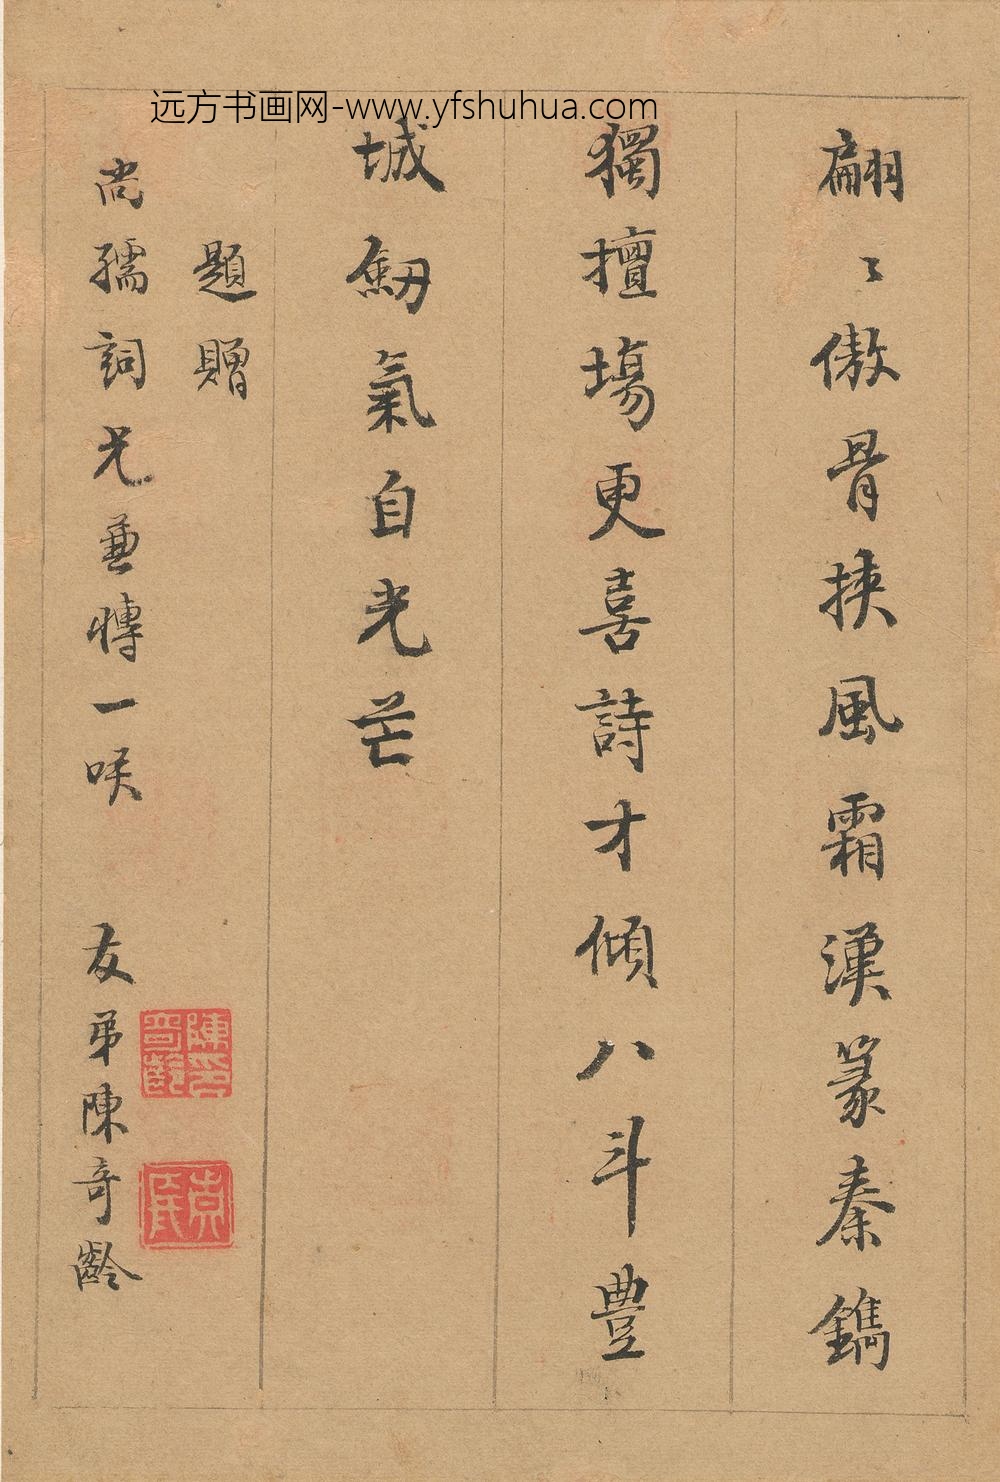 远方书画网-www.yfshuhua.com
翩〻傲骨挾風霜漢篆秦鐫
獨擅場更喜詩才傾八斗豐
城劒氣自光芒
題贈
尚孺詞兄兼博一咲
友弟陳奇齡
陳奇齡印